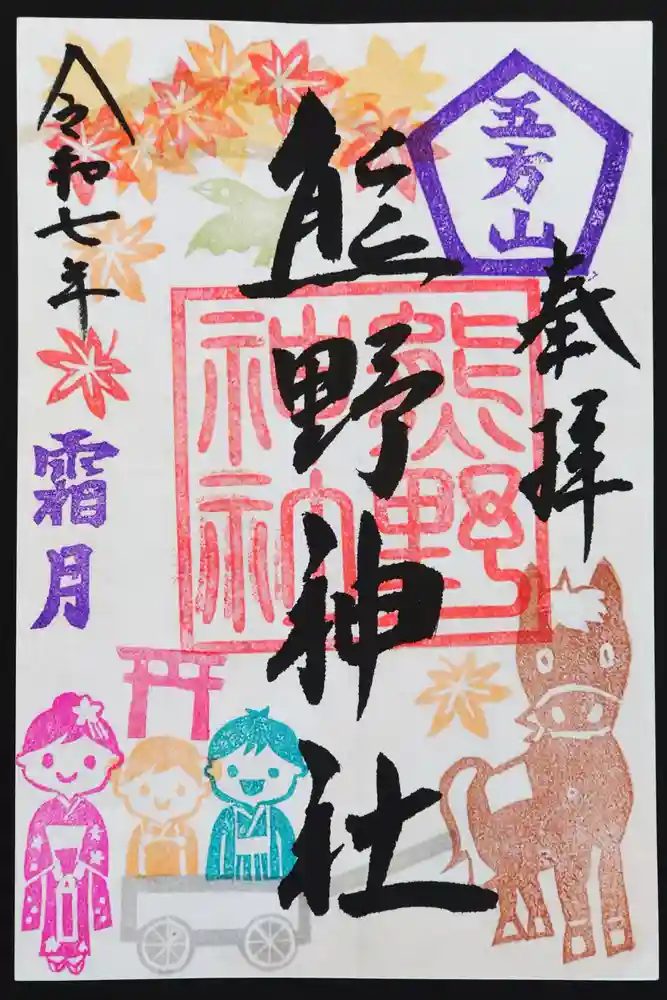 五方山
奉拝
熊野神社
熊野
神社
令和七年
霜月